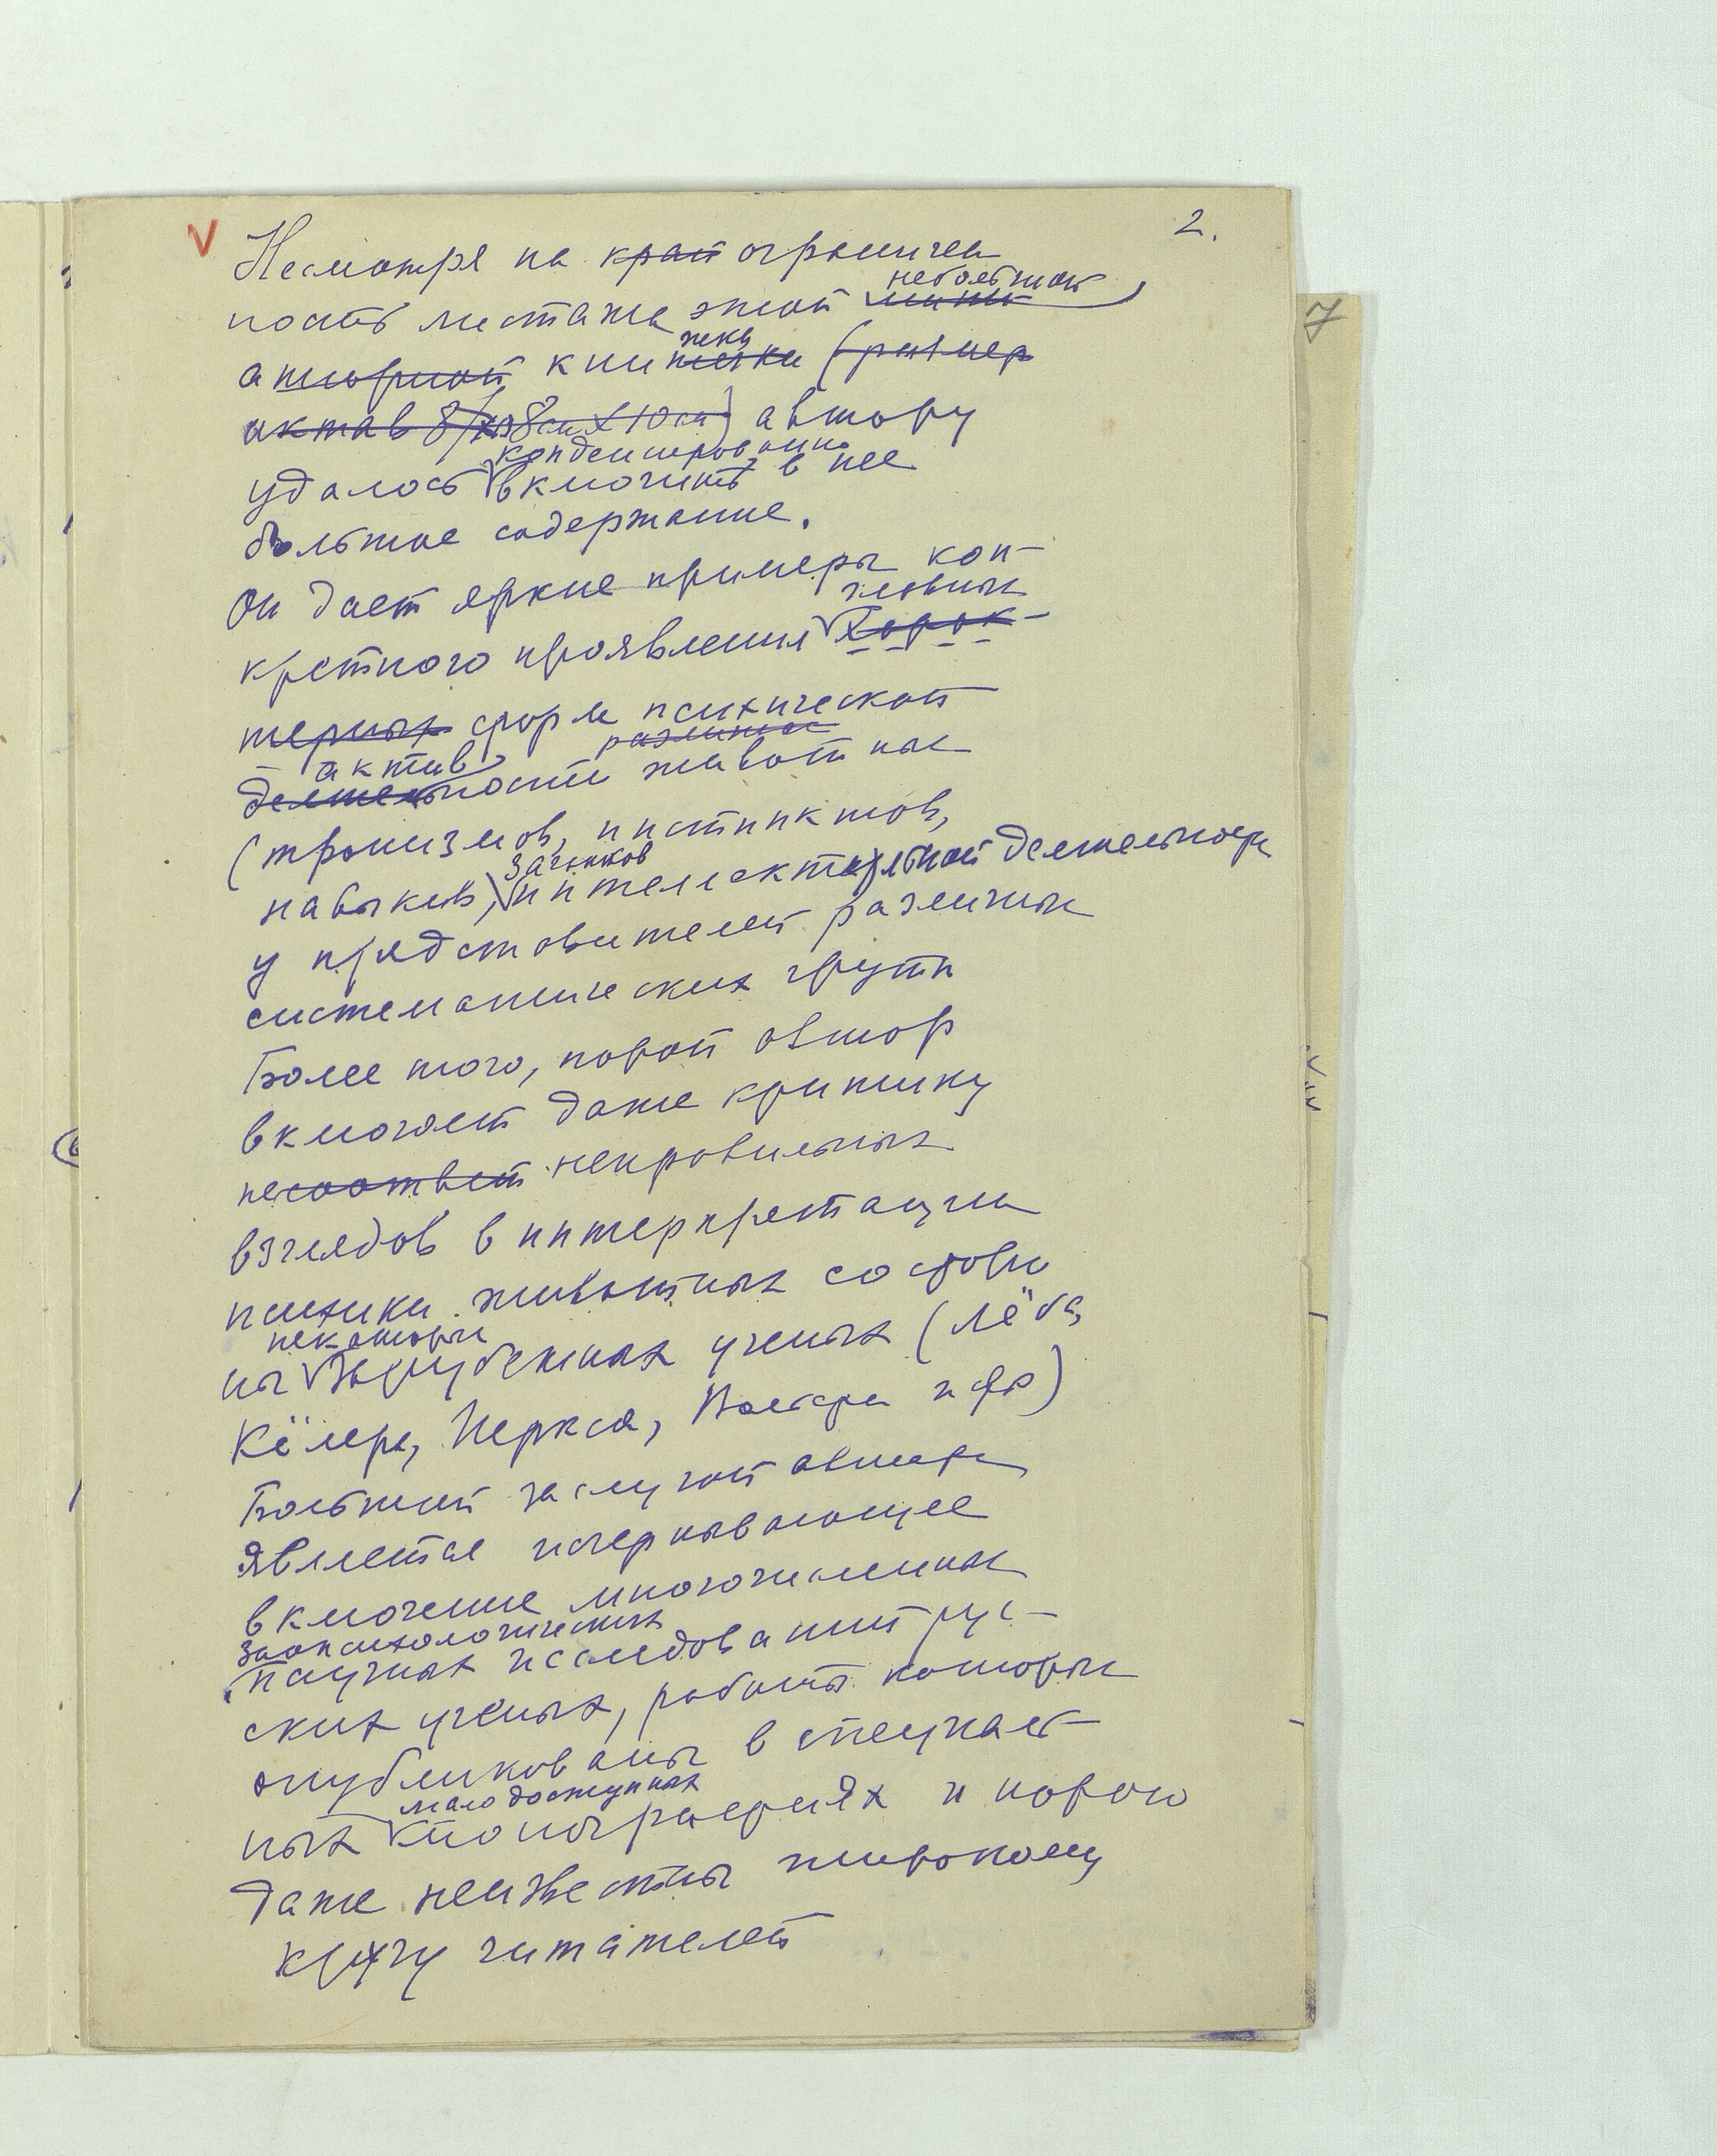 2.
Несмотря на край ограничен
небольшой
ность листажа этой мини
жки
атюрной книжечки (размер
октав 8/10 8см X 10см) автору
конденсировано
удалось включить в нее
большое содержание.
Он дает яркие примеры кон-
главных
кретного проявления Харак-
терных форм психической
различных
актив
деятельности животных
(тропизмов, инстинктов,
зачатков
навыков, интеллектуальной деятельности
у представителей различных
систематических групп
Более того, порой автор
включает даже критику
несоответ неправильных
взглядов в интерпретации
психики животных со сторо
некоторых
ны Зарубежных ученых (Лёба,
Кёлера, Иеркса, и др)
Большой заслугой автора
является исчерпывающее
включение многочисленных
зоопсихологических
научных исследований рус-
ских ученых, работы которых
опубликованы в специаль-
мало доступных
ных монографиях и порою
даже неизвестны широкому
кругу читателей
7